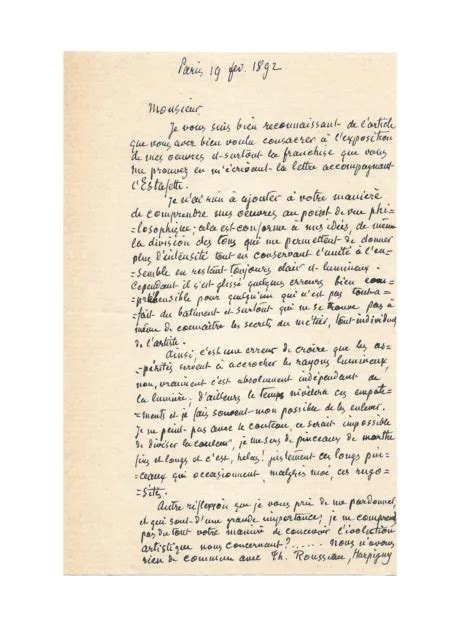 Paris 19 fev. 1892
Monsieur,
Je vous suis bien reconnaissant de l'article
que vous avez bien voulu consacrer à l'exposition
de mes oeuvres et surtout la franchise que vous
me prouvez en m'écrivant la lettre accompagnant
l'Estafette.
Je n'ai rien à ajouter à votre manière
de comprendre mes oeuvres au point de vue phi=
=losophique; cela est conforme à mes idées, de même
la division des tons qui me permettent de donner
plus d'intensité tout en conservant l'unité à l'en=
=semble en restant toujours clair et lumineux.
Cependant il s'est glissé quelques erreurs bien com=
=préhensible pour quelqu'un qui n'est pas tout à=
=fait du batiment et surtout qui ne se trouve pas à
même de connaître les secrets du métier, tout individuel
de l'artiste.
Ainsi, c'est une erreur de croire que les as=
=pérités servent à accrocher les rayons lumineux,
non, vraiment c'est absolument indépendant de
la lumière; d'ailleurs le temps nivelera ces empate=
=ments et je fais souvent mon possible de les enlever.
Je ne peint pas avec le couteau, ce serait impossible
de diviser la couleur, je me sers de pinceaux de marthe
fins et longs et c'est, helas! justement ces longs pin=
=ceaux qui occasionnent, malgrés moi, ces rugo=
=sités.
Autre réflexion que je vous prie de me pardonner,
et qui sont d'une grande importance; je ne comprend
pas du tout votre manière de concevoir l'évolution
artistique nous concernant? ...... nous n'avons
rien de commun avec Th. Rousseau, Harpigny